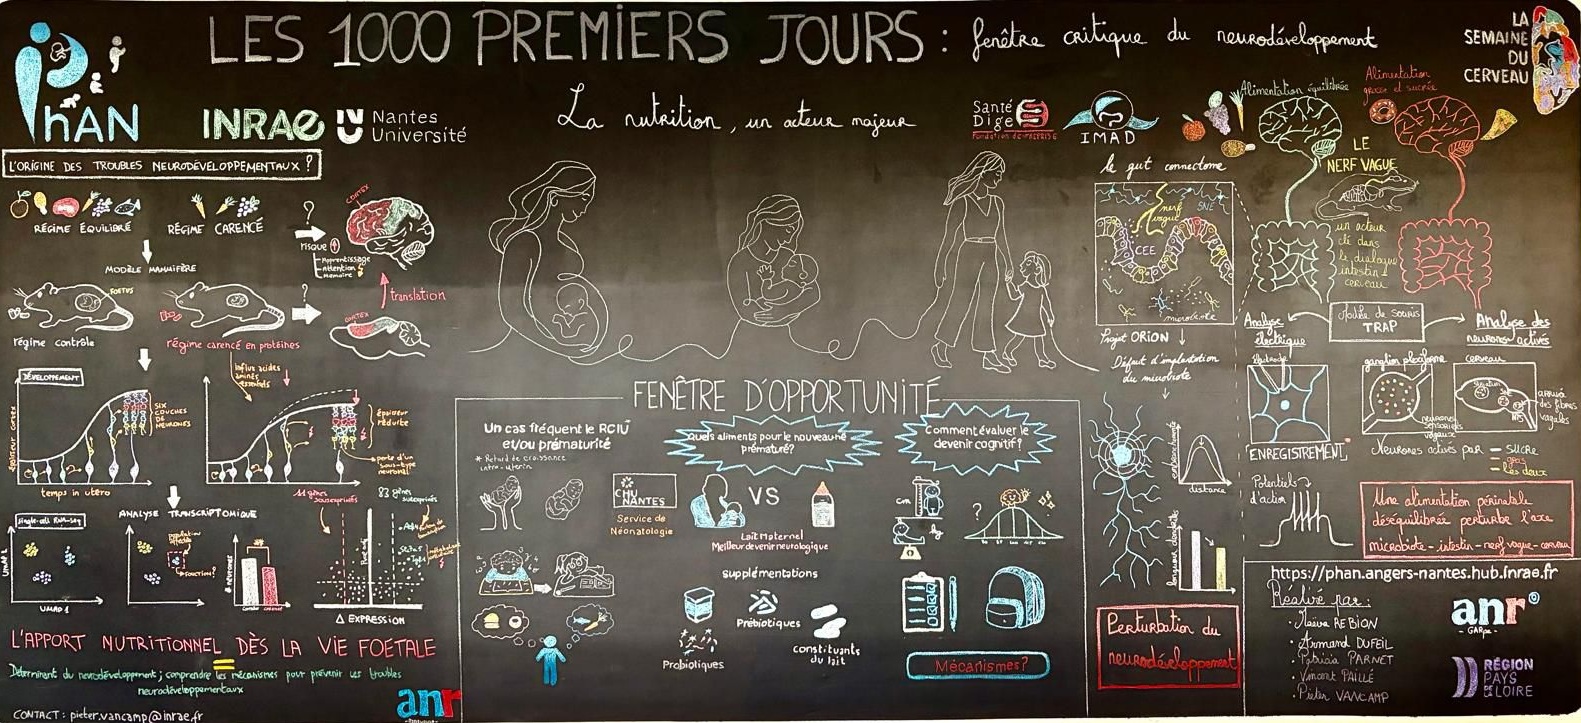 LES 1000 PREMIERS JOURS : fenêtre critique du neurodéveloppement
La nutrition, un acteur majeur
PhAN
INRAE
Nantes
Université
Santé
Dige
IMAD
LA
SEMAINE
DU
CERVEAU
L'ORIGINE DES TROUBLES NEURODÉVELOPPEMENTAUX ?
RÉGIME ÉQUILIBRÉ
RÉGIME CARENCÉ
?
risque
Apprentissage
Attention
Mémoire
CORTEX
MODÈLE MAMMIFÈRE
FOETUS
?
translation
CORTEX
régime contrôle
régime carencé en protéines
DÉVELOPPEMENT
épaisseur cortex
SIX
COUCHES
DE
NEURONES
temps in utero
Influx acides
aminés
essentiels
épaisseur
réduite
perte d'un
sous-type
neuronal
ANALYSE TRANSCRIPTOMIQUE
Single-cell RNA-seq
UMAP 1
population
affectée
FONCTION?
# neurones
44 gènes
sousexprimés
83 gènes
surexprimés
Δ EXPRESSION
L'APPORT NUTRITIONNEL DÈS LA VIE FOETALE
Déterminant du neurodéveloppement ; comprendre les mécanismes pour prévenir les troubles
neurodéveloppementaux
CONTACT : pieter.vancamp@inrae.fr
anr
FENÊTRE D'OPPORTUNITÉ
Un cas fréquent le RCIU*
et/ou prématurité
* Retard de croissance
intra-utérin
CHU
NANTES
Service de
Néonatologie
Quels aliments pour le nouveau né
prématuré?
VS
Lait Maternel
Meilleur devenir neurologique
supplémentations
Prébiotiques
Probiotiques
constituants
du lait
Comment évaluer le
devenir cognitif?
cm
kg
?
Mécanismes?
le gut connectome
nerf
vague
SNE
CEE
microbiote
Projet ORION
Défaut d'implantation
du microbiote
embranchements
distance
longueur dendrites
Perturbation du
neurodéveloppement
Alimentation équilibrée
Alimentation
grasse et sucrée
LE
NERF VAGUE
un acteur
clé dans
le dialogue
intestin
cerveau
Modèle de souris
TRAP
Analyse
électrique
électrode
ENREGISTREMENT
Potentiels
d'action
Analyse des
neurones activés
ganglion plexiforme
cerveau
neurones
sensoriels
vagaux
arrivée
des fibres
vagales
Neurones activés par
sucre
gras
les deux
Une alimentation périnatale
déséquilibrée perturbe l'axe
microbiote-intestin-nerf vague-cerveau
https://phan.angers-nantes.hub.inrae.fr
Réalisé par :
• Maëva REBION
• Armand DUFEIL
• Patricia PARNET
• Vincent PAILLÉ
• Pieter VANCAMP
anr
RÉGION
PAYS
DE LA LOIRE